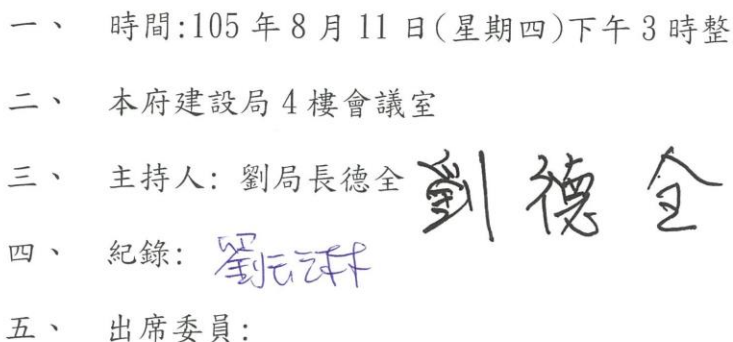 一、 時間:105年8月11日(星期四)下午3時整
二、 本府建設局4樓會議室
三、 主持人: 劉局長德全 劉德全
四、 紀錄: 劉
五、 出席委員: